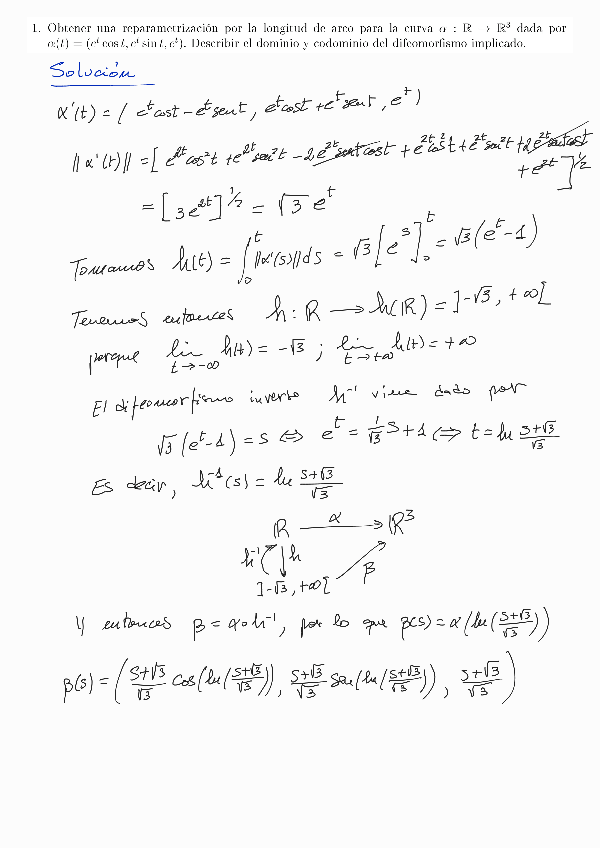 1. Obtener una reparametrización por la longitud de arco para la curva α : ℝ → ℝ³ dada por
α(t) = (eᵗ cos t, eᵗ sin t, eᵗ). Describir el dominio y codominio del difeomorfismo implicado.
Solución
α'(t) = ( eᵗcost − eᵗsent, eᵗcost + eᵗsent, eᵗ )
||α'(t)|| = [ e²ᵗcos²t + e²ᵗsen²t − 2e²ᵗsentcost + e²ᵗcos²t + e²ᵗsen²t + 2e²ᵗsentcost
+ e²ᵗ ]^1/2
= [3e²ᵗ]^1/2 = √3 eᵗ
Tomamos h(t) = ∫₀ᵗ ||α'(s)||ds = √3 [eˢ]₀ᵗ = √3(eᵗ−1)
Tenemos entonces h: ℝ ⟶ h(ℝ) = ]−√3, +∞[
porque lim t→−∞ h(t) = −√3 ; lim t→+∞ h(t) = +∞
El difeomorfismo inverso h⁻¹ viene dado por
√3(eᵗ−1) = s ⇔ eᵗ = 1/√3 s + 1 ⇔ t = ln (s+√3)/√3
Es decir, h⁻¹(s) = ln (s+√3)/√3
ℝ α ⟶ ℝ³
h⁻¹ h
β
]−√3, +∞[
Y entonces β = α∘h⁻¹, por lo que β(s) = α(ln((s+√3)/√3))
β(s) = ( (s+√3)/√3 cos(ln((s+√3)/√3)), (s+√3)/√3 sen(ln((s+√3)/√3)), (s+√3)/√3 )